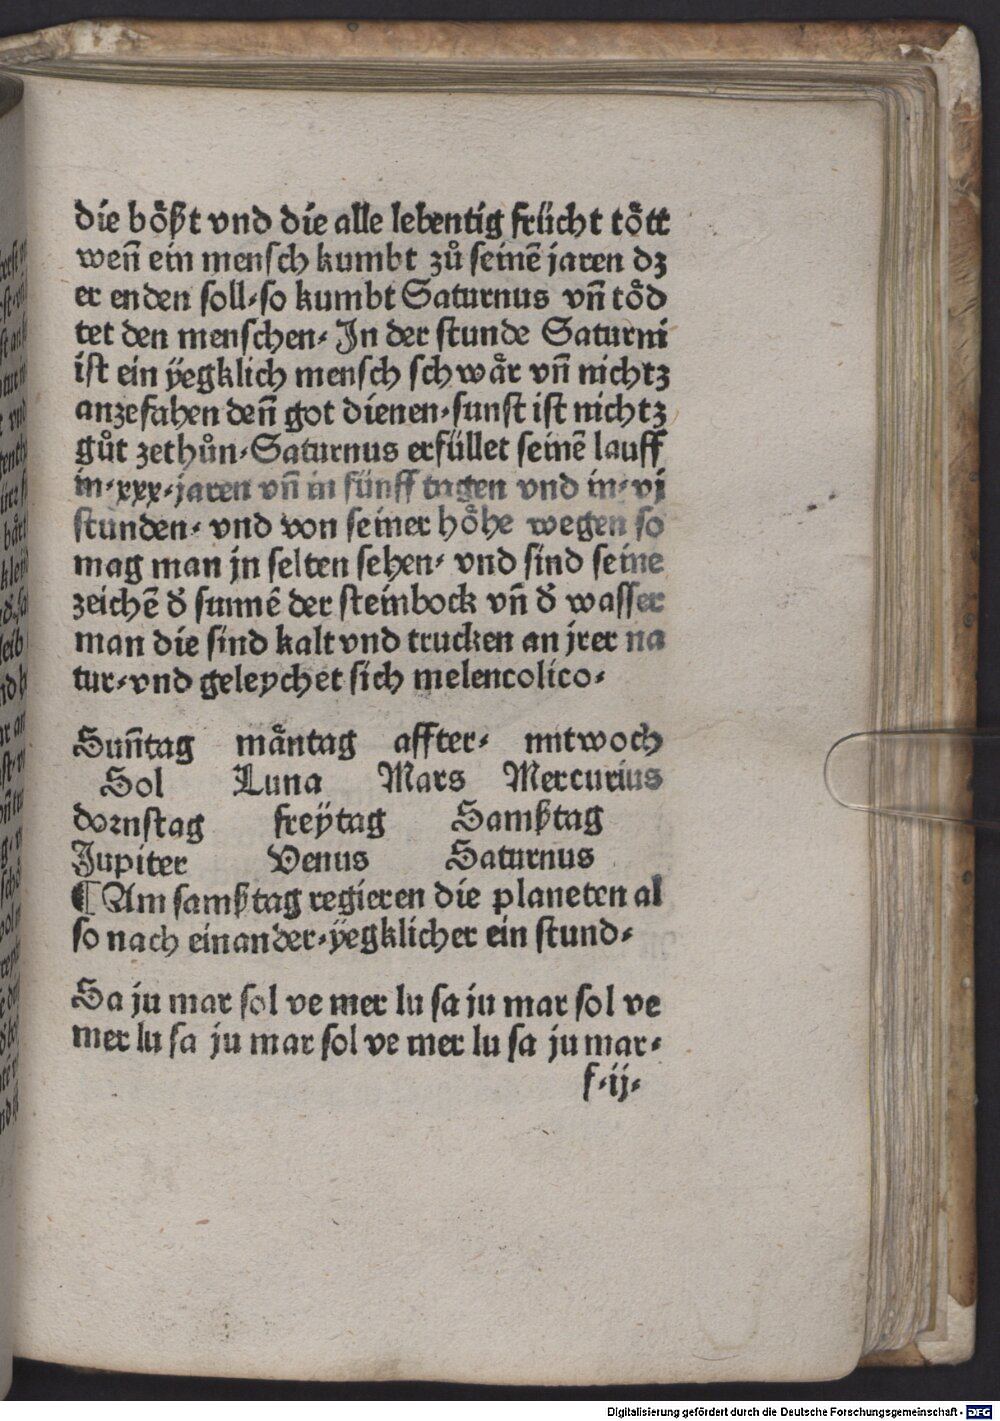 die boͤßt vnd die alle lebentig frücht toͤtt
wen̄ ein mensch kumbt zů seinē jaren dz
er enden soll·so kumbt Saturnus vn̄ toͤd
tet den menschen· In der stunde Saturni
ist ein ÿegklich mensch schwaͤr vn̄ nichtz
anzefahen den̄ got dienen·sunst ist nichtz
gůt zethůn·Saturnus erfüllet seinē lauff
in·xxx·jaren vn̄ in fünff tagen vnd in·vj
stunden· vnd von seiner hoͤhe wegen so
mag man jn selten sehen· vnd sind seine
zeichē đ sunnē der steinbock vn̄ đ wasser
man die sind kalt vnd trucken an jrer na
tur·vnd geleychet sich melencolico·
Sun̄tag maͤntag affter· mitwoch
Sol Luna Mars Mercurius
dornstag freÿtag Samßtag
Jupiter Venus Saturnus
¶ Am samßtag regieren die planeten al
so nach einander·ÿegklicher ein stund·
Sa ju mar sol ve mer lu sa ju mar sol ve
mer lu sa ju mar sol ve mer lu sa ju mar·
f·ij·
Digitalisierung gefördert durch die Deutsche Forschungsgemeinschaft - DFG